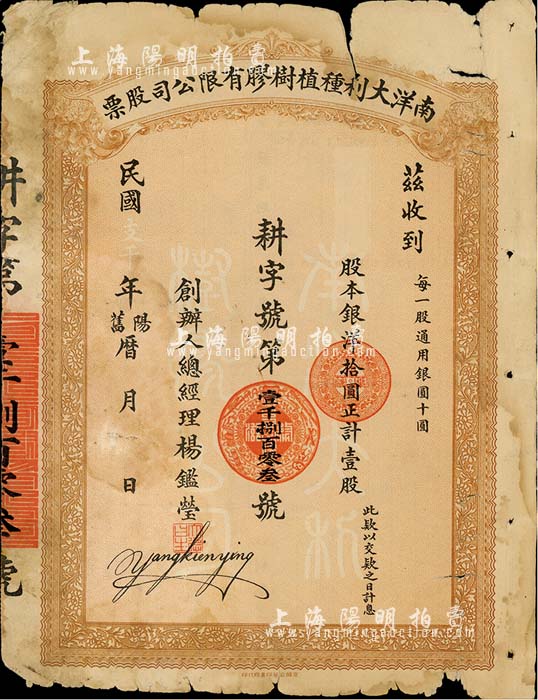 上海陽明拍賣
www.yangmingauction.com
南洋大利種植樹膠有限公司股票
茲收到
每一股通用銀圓十圓
股本銀洋拾圓正計壹股
此款以交款之日計息
耕字號第壹千捌百零叁號
創辦人總經理楊鑑瑩
Yangkienying
民國支干年陽舊曆月日
耕字第壹千捌百零叁號
上海陽明拍賣
www.yangmingauction.com
上海陽明拍賣
www.yangmingauction.com